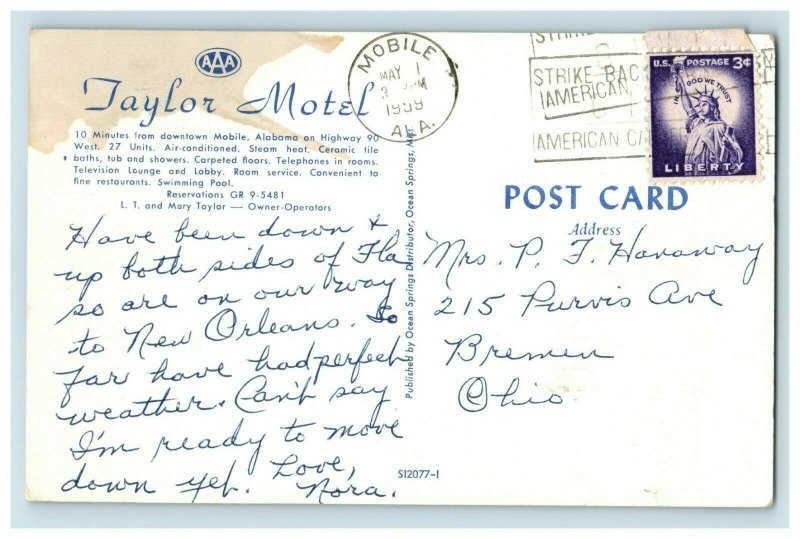 AAA
Taylor Motel
10 Minutes from downtown Mobile, Alabama on Highway 90
West. 27 Units. Air-conditioned. Steam heat. Ceramic tile
baths, tub and showers. Carpeted floors. Telephones in rooms.
Television Lounge and Lobby. Room service. Convenient to
fine restaurants. Swimming Pool.
Reservations GR 9-5481
L. T. and Mary Taylor — Owner-Operators
Have been down &
up both sides of Fla
so are on our way
to New Orleans. So
far have had perfect
weather. Can't say
I'm ready to move
down yet. Love,
Nora.
Published by Ocean Springs Distributor, Ocean Springs, Miss.
SI2077-1
MOBILE
MAY 1
3 PM
1959
ALA.
STRIKE BAC
AMERICAN
AMERICAN CA
U.S. POSTAGE 3¢
IN GOD WE TRUST
LIBERTY
POST CARD
Address
Mrs. P. F. Hanaway
215 Purvis Ave
Bremen
Ohio